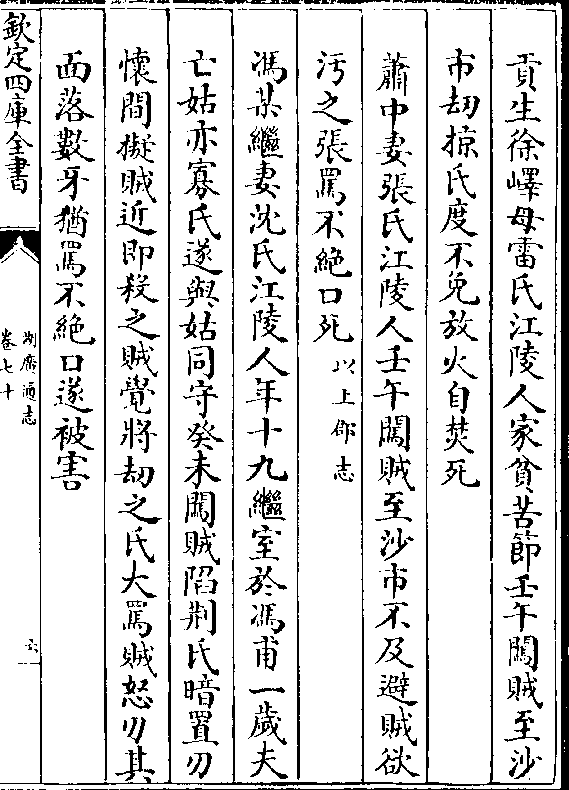 貢生徐嶧母雷氏江陵人家貧苦節壬午闖賊至沙
市刼掠氏度不免放火自焚死
蕭中妻張氏江陵人壬午闖賊至沙市不及避賊欲
汚之張罵不絶口死以上郡志
馮某繼妻沈氏江陵人年十九繼室於馮甫一歲夫
亡姑亦寡氏遂與姑同守癸未闖賊陷荆氏暗置刃
懷間擬賊近即殺之賊覺將刼之氏大罵賊怒刃其
面落數牙猶罵不絶口遂被害
欽定四庫全書
湖廣通志
卷七十
六